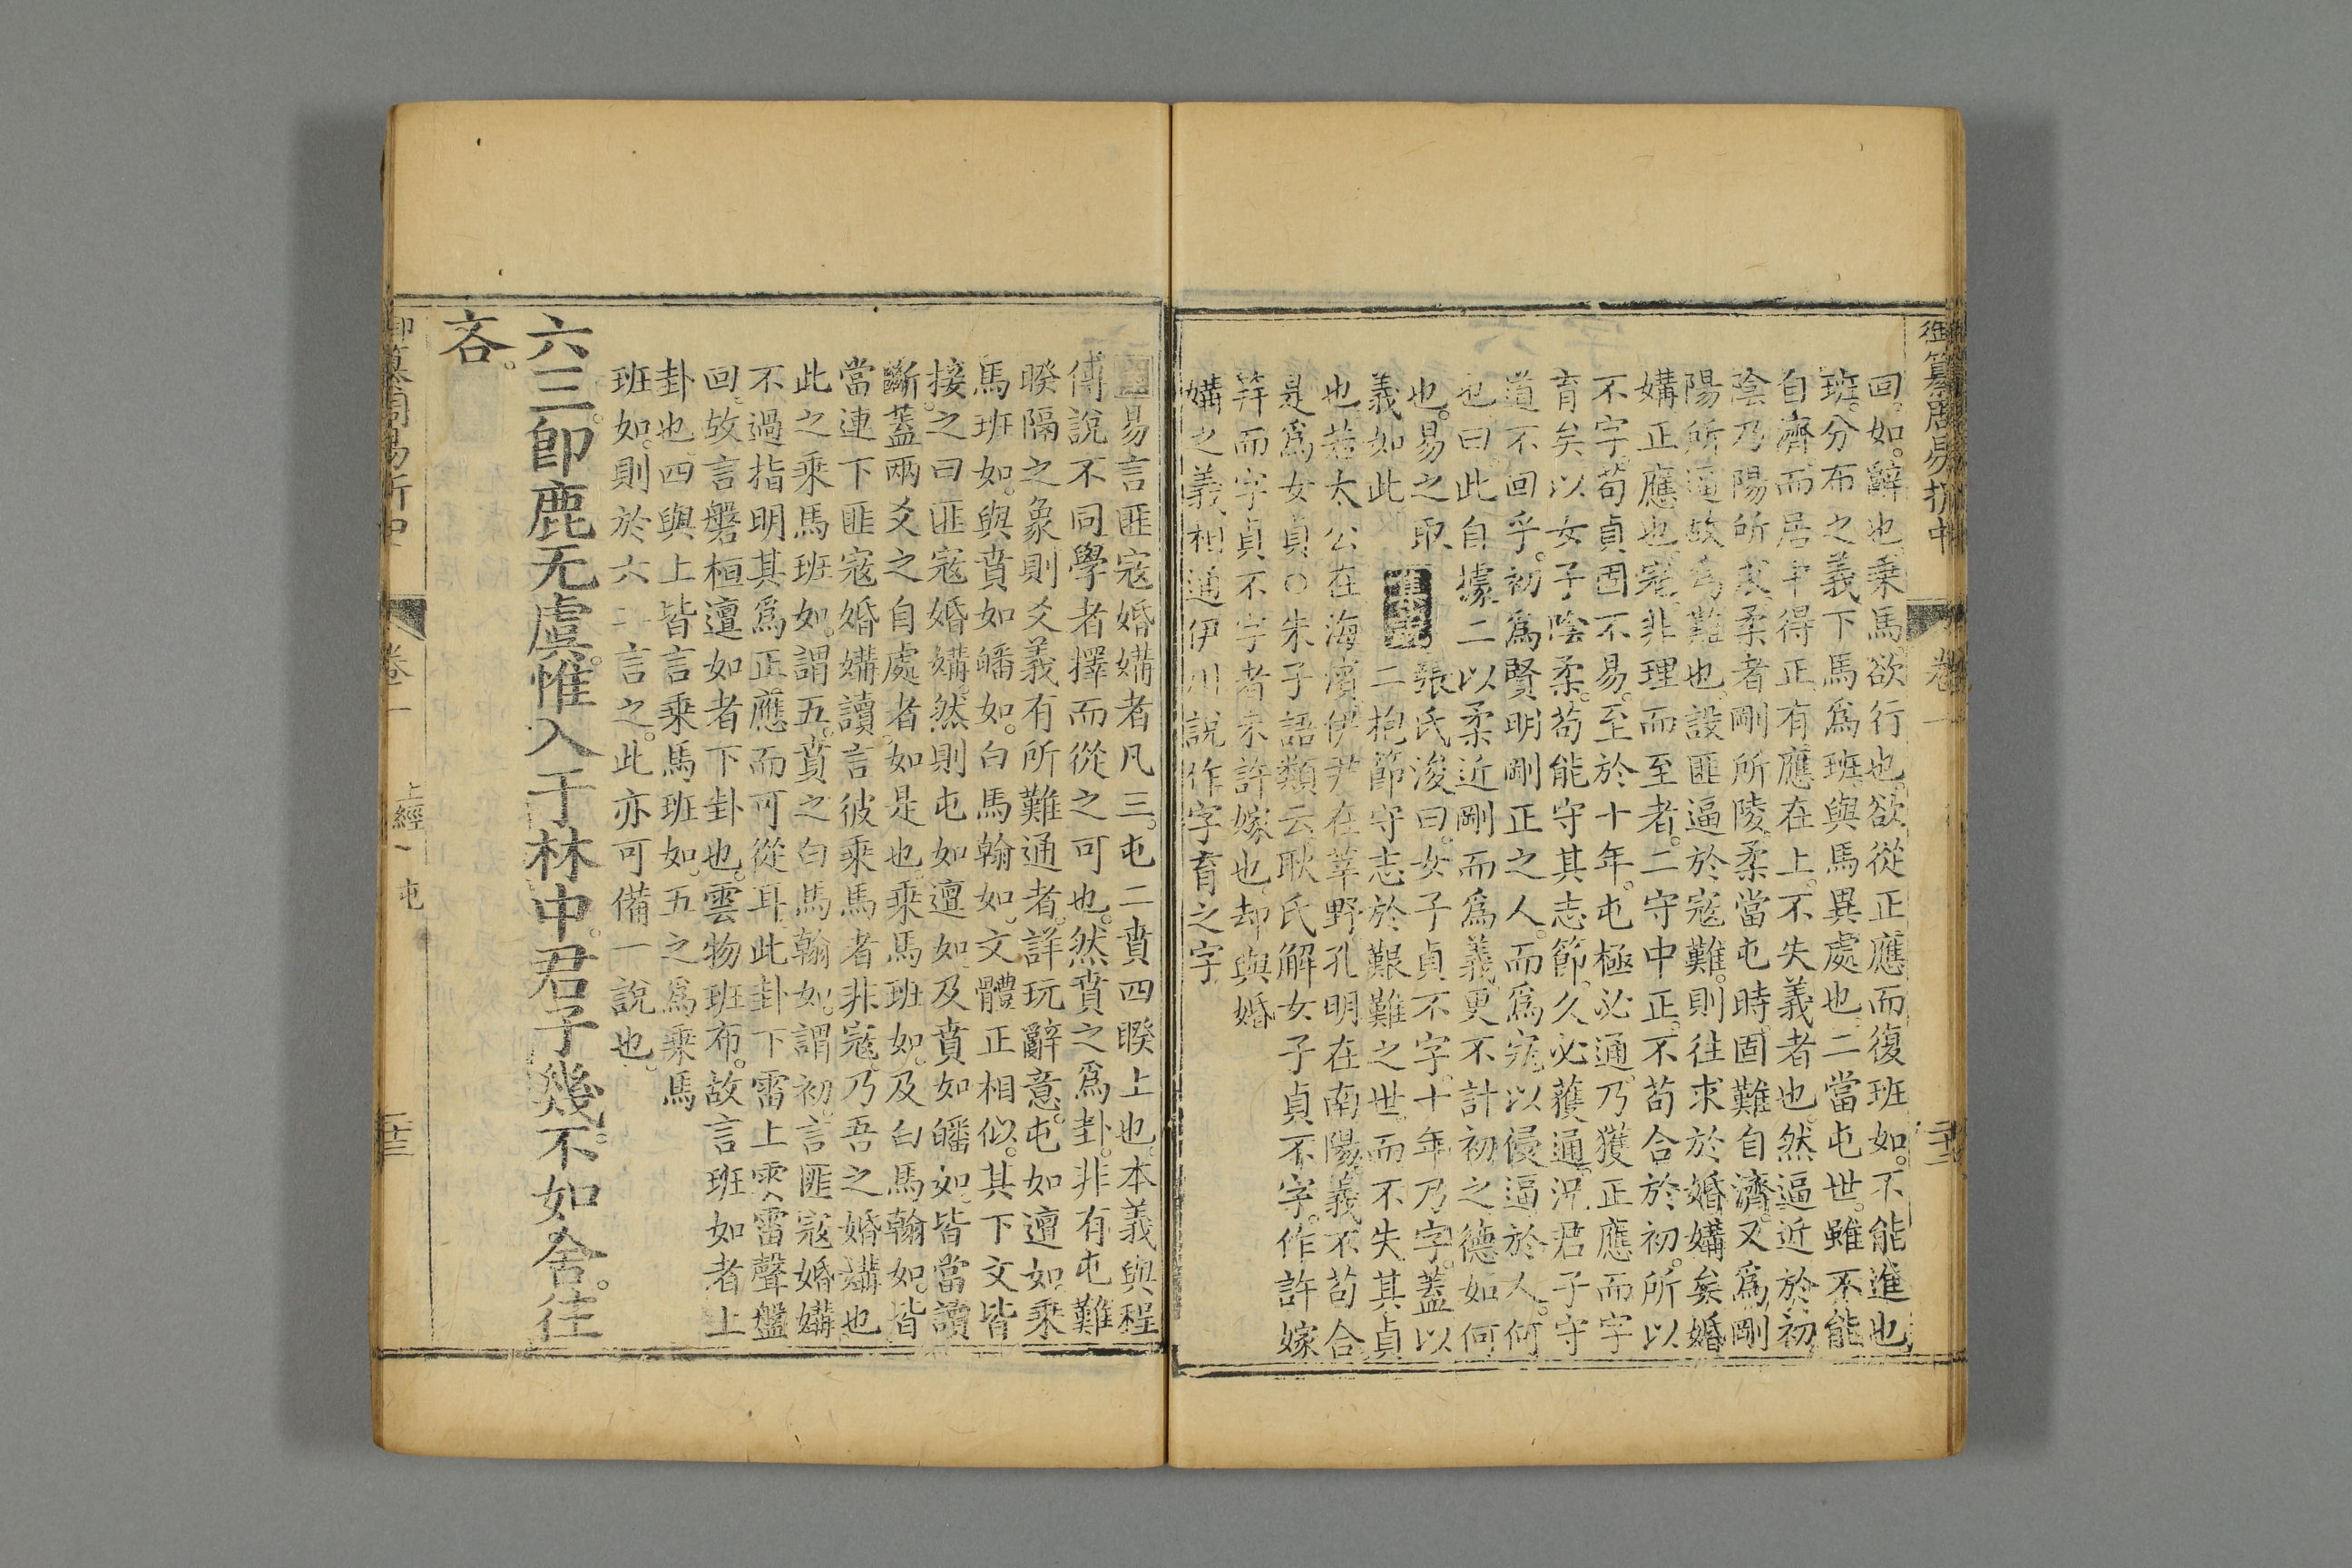 御纂周易折中
卷一
二十二
回。如。辭也。乗馬。欲行也。欲從正應而復班如。不能進也
班。分布之義。下馬爲班。與馬異處也。二當屯世。雖不能
自濟。而居中得正。有應在上。不失義者也。然逼近於初
陰乃陽所求。柔者剛所陵。柔當屯時。固難自濟。又爲剛
陽所逼。故爲難也。設匪逼於寇難。則往求於婚媾矣。婚
媾正應也。寇。非理而至者。二守中正。不苟合於初。所以
不字。苟貞固不易。至於十年。屯極必通。乃獲正應而字
育矣。以女子陰柔。苟能守其志節。久必獲通。況君子守
道不回乎。初爲賢明剛正之人。而爲寇以侵逼於人。何
也。曰。此自據二以柔近剛而爲義。更不計初之德如何
也。易之取
義如此
集說
張氏浚曰。女子貞不字。十年乃字。蓋以
二抱節守志於艱難之世。而不失其貞
也。若太公在海濱。伊尹在莘野。孔明在南陽。義不苟合
是爲女貞○朱子語類云。耿氏解女子貞不字。作許嫁
笄而字。貞不字者。未許嫁也。却與婚
媾之義相通。伊川說作字育之字
易言匪寇婚媾者凡三。屯二賁四睽上也。本義與程
傳說不同。學者擇而從之可也。然賁之爲卦。非有屯難
睽隔之象。則爻義有所難通者。詳玩辭意。屯如邅如。乘
馬班如。與賁如皤如。白馬翰如。文體正相似。其下文皆
接之曰匪寇婚媾。然則屯如邅如。及賁如皤如。皆當讀
斷。蓋兩爻之自處者。如是也。乘馬班如。及白馬翰如。皆
當連下匪寇婚媾讀。言彼乘馬者非寇。乃吾之婚媾也
此之乘馬班如。謂五。賁之白馬翰如。謂初。言匪寇婚媾
不過指明其爲正應而可從耳。此卦下雷上雲。雷聲盤
回。故言磐桓邅如者。下卦也。雲物班布。故言班如者。上
卦也。四與上皆言乘馬班如。五之爲乘馬
班如。則於六二言之。此亦可備一說也。
六三。卽鹿无虞。惟入于林中。君子幾。不如舍。往
吝。
御纂周易折中
卷一
上經一 屯
二十三